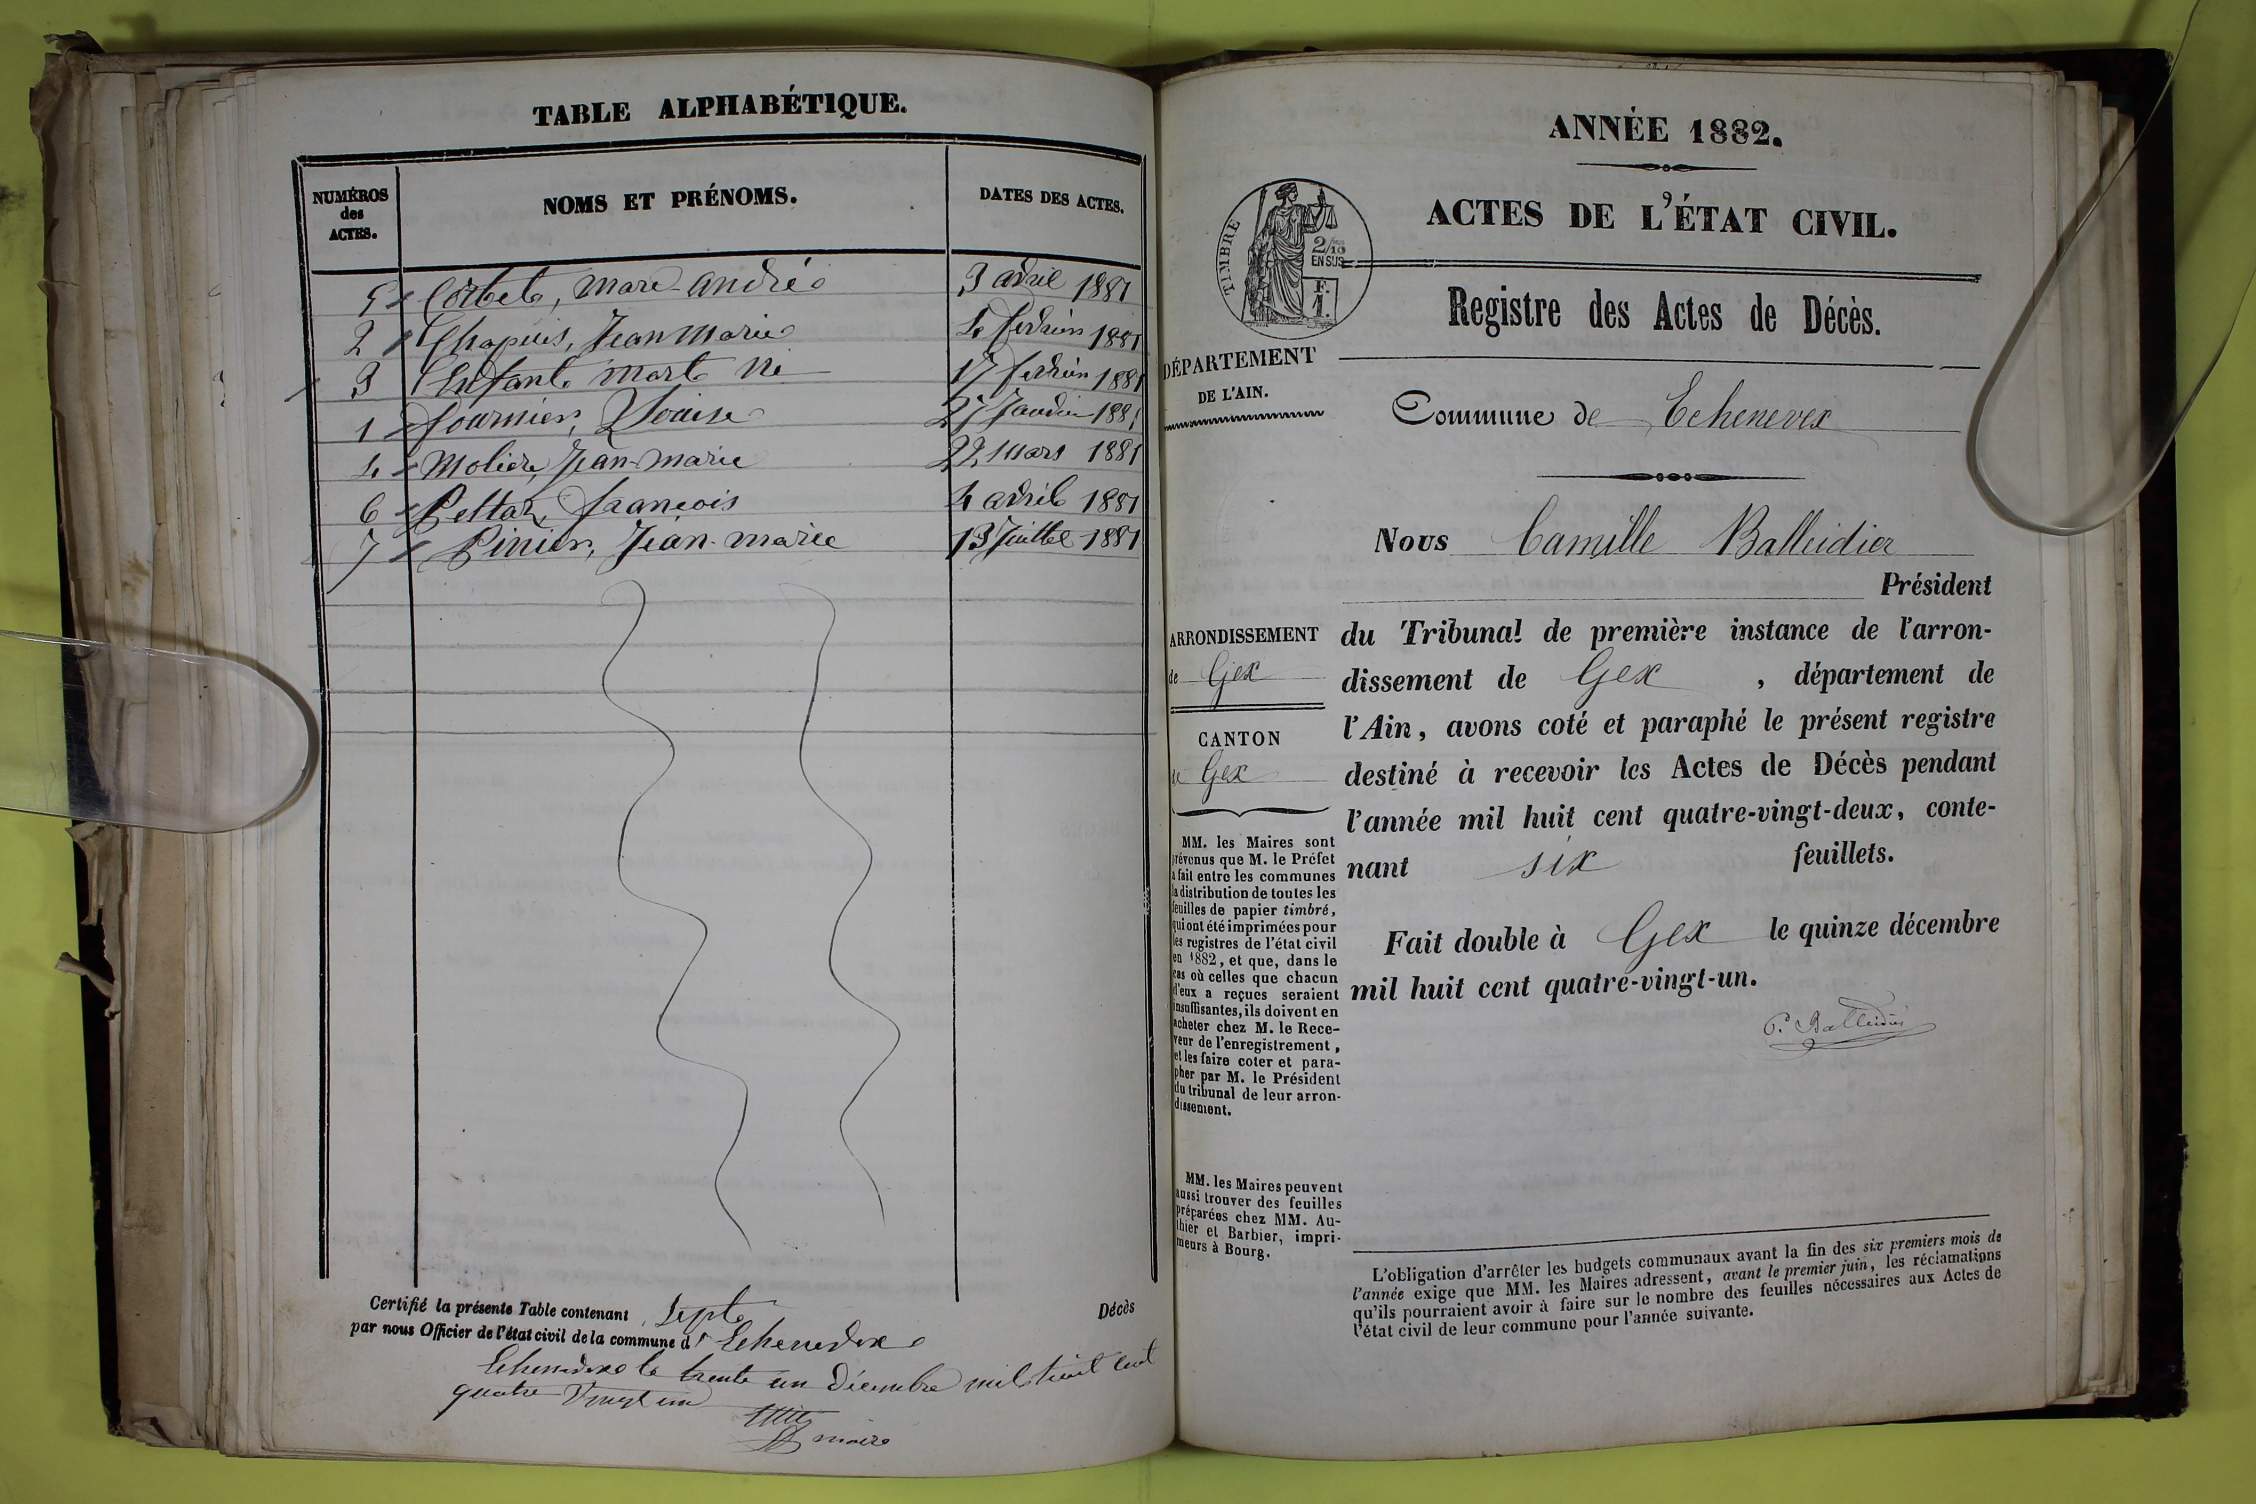 TABLE ALPHABÉTIQUE.
NUMÉROS des ACTES.
NOMS ET PRÉNOMS.
DATES DES ACTES.
5 Corbet, marc-andré 3 avril 1881
2 Chapuis, Jean Marie 4 février 1881
3 Enfant mort né 17 février 1881
1 fournier, Louise 27 Janvier 1881
4 Molière, Jean-marie 22 mars 1881
6 Peltaz, françois 4 avril 1881
7 Pinier, Jean-marie 13 Juillet 1881
Certifié la présente Table contenant Sept Décès
par nous Officier de l'état civil de la commune d' Echenevex
Echenevex le trente un décembre mil huit cent
quatre vingt un
maire
ANNÉE 1882.
ACTES DE L'ÉTAT CIVIL.
TIMBRE
2/10
EN SUS
F.
1.
Registre des Actes de Décès.
DÉPARTEMENT
DE L'AIN.
Commune de Echenevex
Nous Camille Balleidier
Président
ARRONDISSEMENT
de Gex
CANTON
de Gex
du Tribunal de première instance de l'arron-
dissement de Gex, département de
l'Ain, avons coté et paraphé le présent registre
destiné à recevoir les Actes de Décès pendant
l'année mil huit cent quatre-vingt-deux, conte-
nant six feuillets.
Fait double à Gex le quinze décembre
mil huit cent quatre-vingt-un.
C. Balleidier
MM. les Maires sont
prévenus que M. le Préfet
a fait entre les communes
la distribution de toutes les
feuilles de papier timbré,
qui ont été imprimées pour
les registres de l'état civil
en 1882, et que, dans le
cas où celles que chacun
d'eux a reçues seraient
insuffisantes, ils doivent en
acheter chez M. le Rece-
veur de l'enregistrement,
et les faire coter et para-
pher par M. le Président
du tribunal de leur arron-
dissement.
MM. les Maires peuvent
aussi trouver des feuilles
préparées chez MM. Au-
thier et Barbier, impri-
meurs à Bourg.
L'obligation d'arrêter les budgets communaux avant la fin des six premiers mois de
l'année exige que MM. les Maires adressent, avant le premier juin, les réclamations
qu'ils pourraient avoir à faire sur le nombre des feuilles nécessaires aux Actes de
l'état civil de leur commune pour l'année suivante.